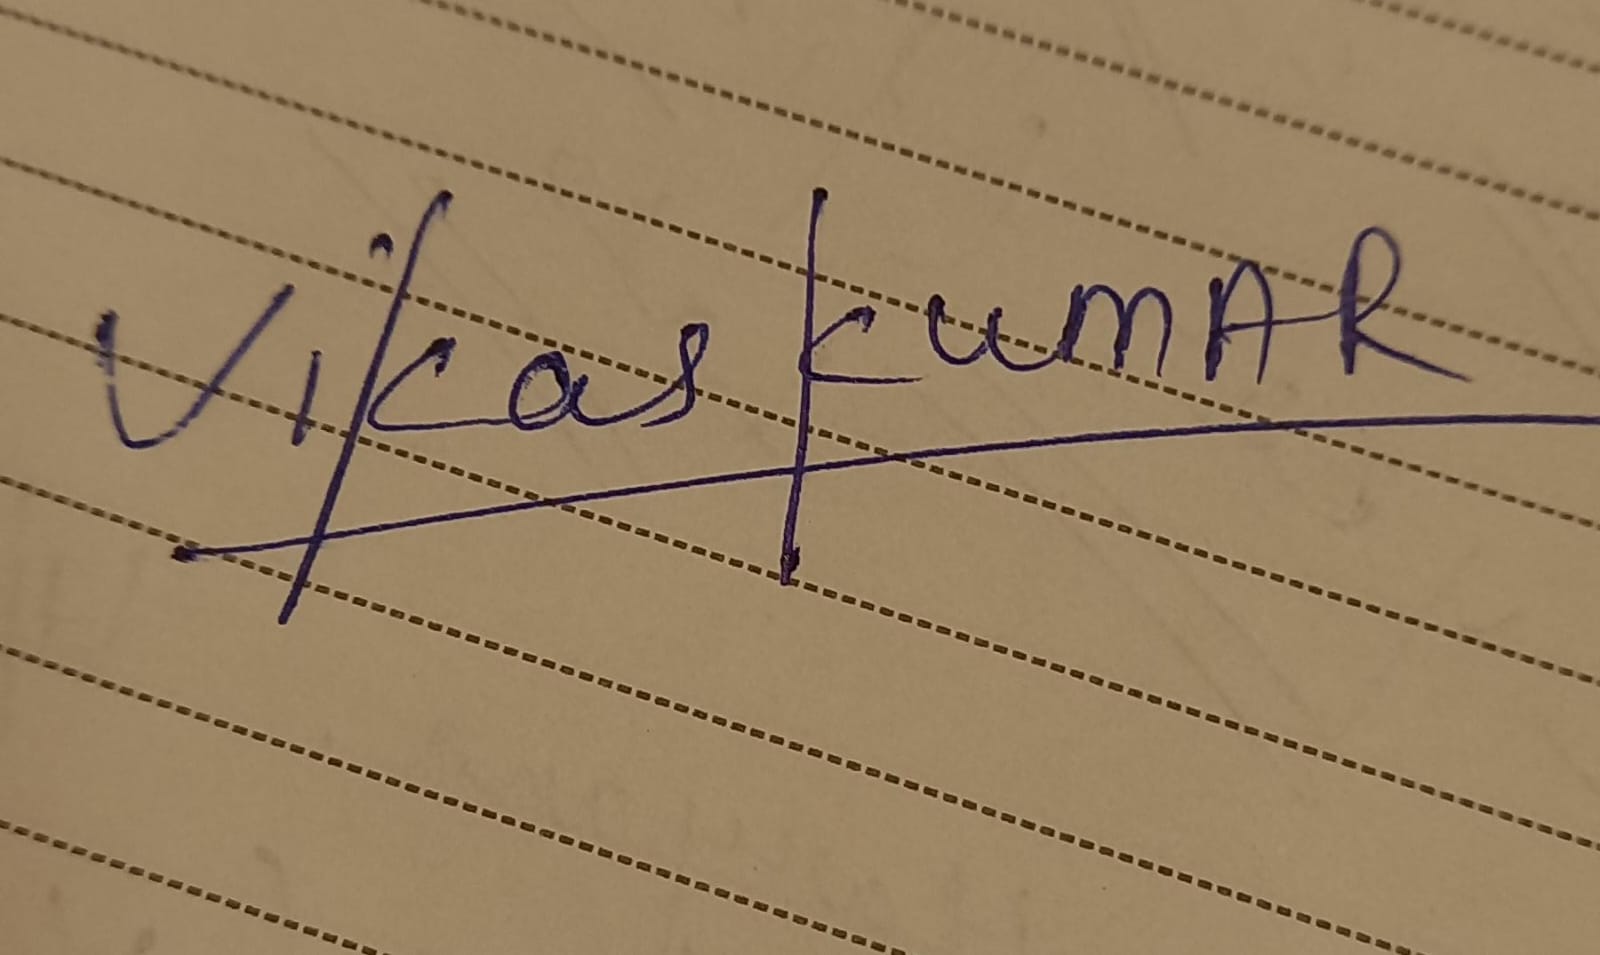 Vikas KUMAR